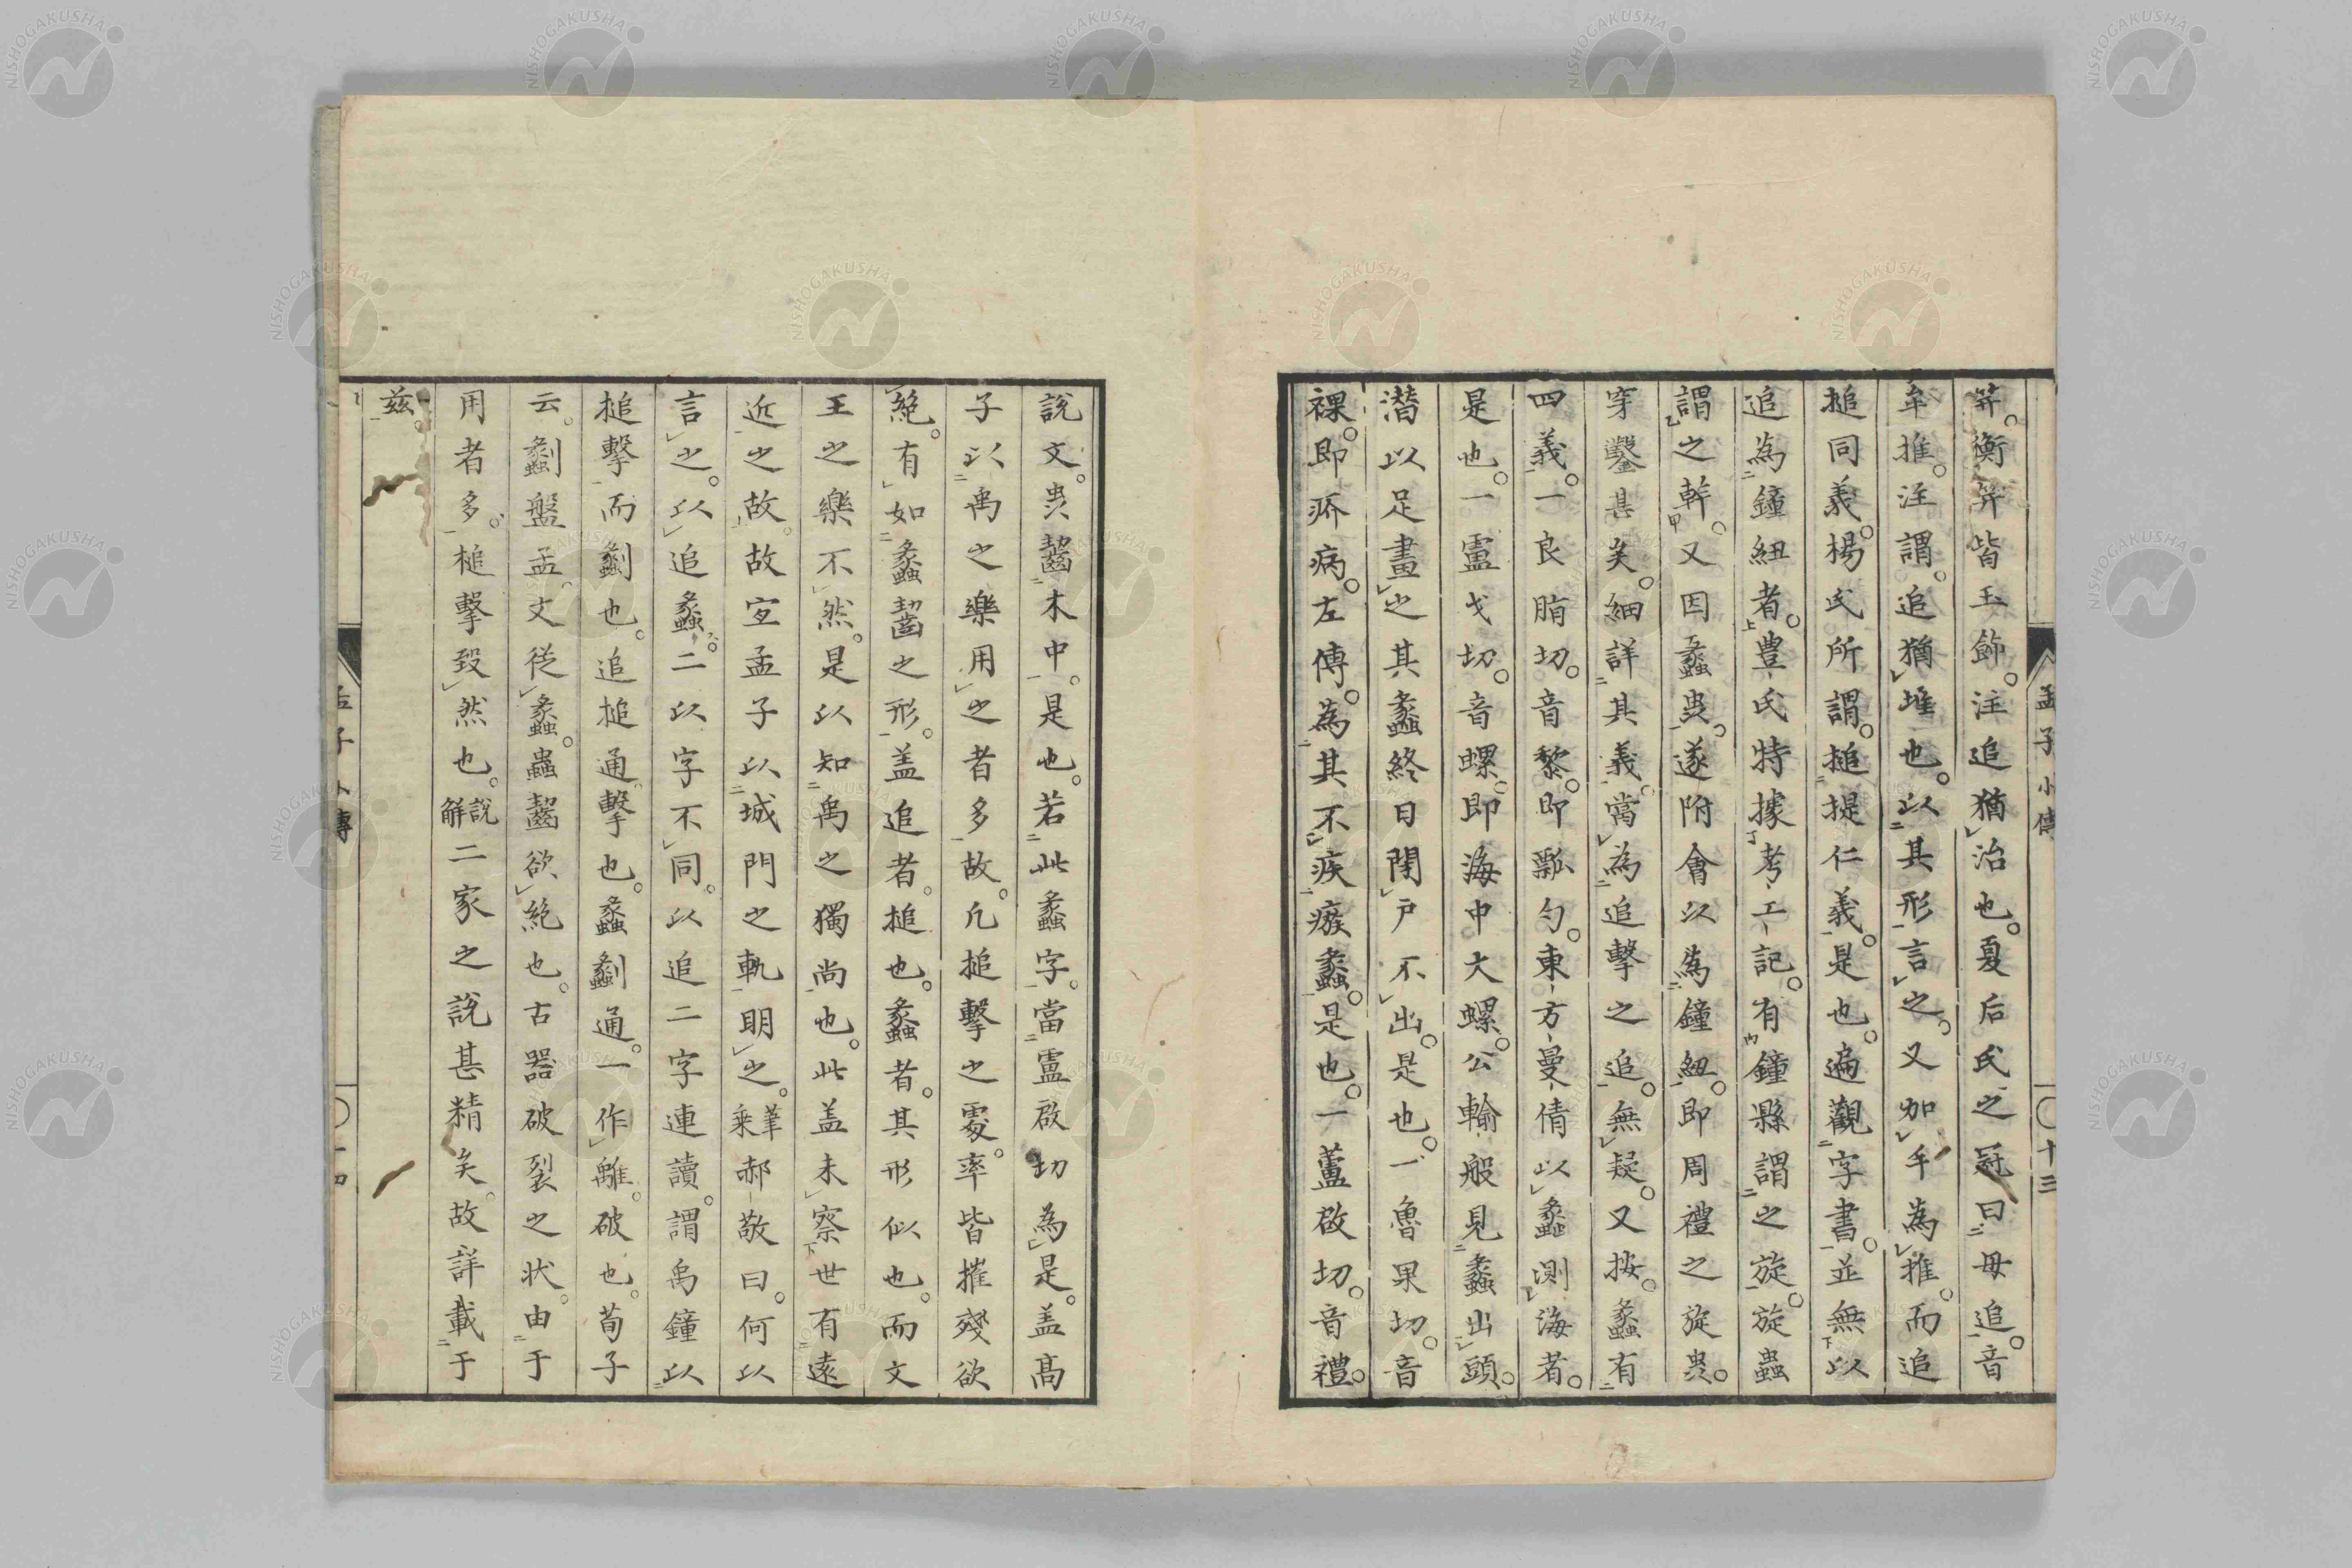 笄。衡笄皆玉飾。注追猶治也。夏后氏之冠曰母追。音
牟推。注謂。追猶堆也。以其形言之。又加手為推。而追
搥同義。楊氏所謂。搥提仁義。是也。遍觀字書。並無以
追為鐘紐者。豊氏特據考工記。有鐘縣謂之旋。旋蟲
謂之幹。又因蠡䖝。遂附會以為鐘紐。即周禮之旋䖝。
穿鑿甚矣。細詳其義。當為追擊之追。無疑。又按。蠡有
四義。一良脂切。音黎。即瓢勺。東方曼倩以蠡測海者。
是也。一盧戈切。音螺。即海中大螺。公輸般見蠡出頭。
潜以足畫之其蠡終日閉戸不出。是也。一魯果切。音
裸。即疥病。左傳。為其不疾瘯蠡。是也。一蘆啟切。音禮。
孟子小傳 十三
說文。䖝齧木中。是也。若此蠡字。當盧啟切為是。盖高
子以禹之樂用之者多故。凡搥擊之䖏。率皆摧殘欲
絶。有如蠡齧之形。盖追者。搥也。蠡者。其形似也。而文
王之樂不然。是以知禹之獨尚也。此盖未察世有遠
近之故。故宐孟子以城門之軌明之。乗葦郝敬曰。何以
言之。以追蠡。二以字不同。以追二字連讀。謂禹鐘以
搥擊而劙也。追搥通擊也。蠡劙通。一作離。破也。荀子
云。劙盤盂。文從蠡。蟲齧欲絶也。古器破裂之状。由于
用者多。槌擊致然也。說解二家之說甚精矣。故詳載于
茲。
孟子小傳